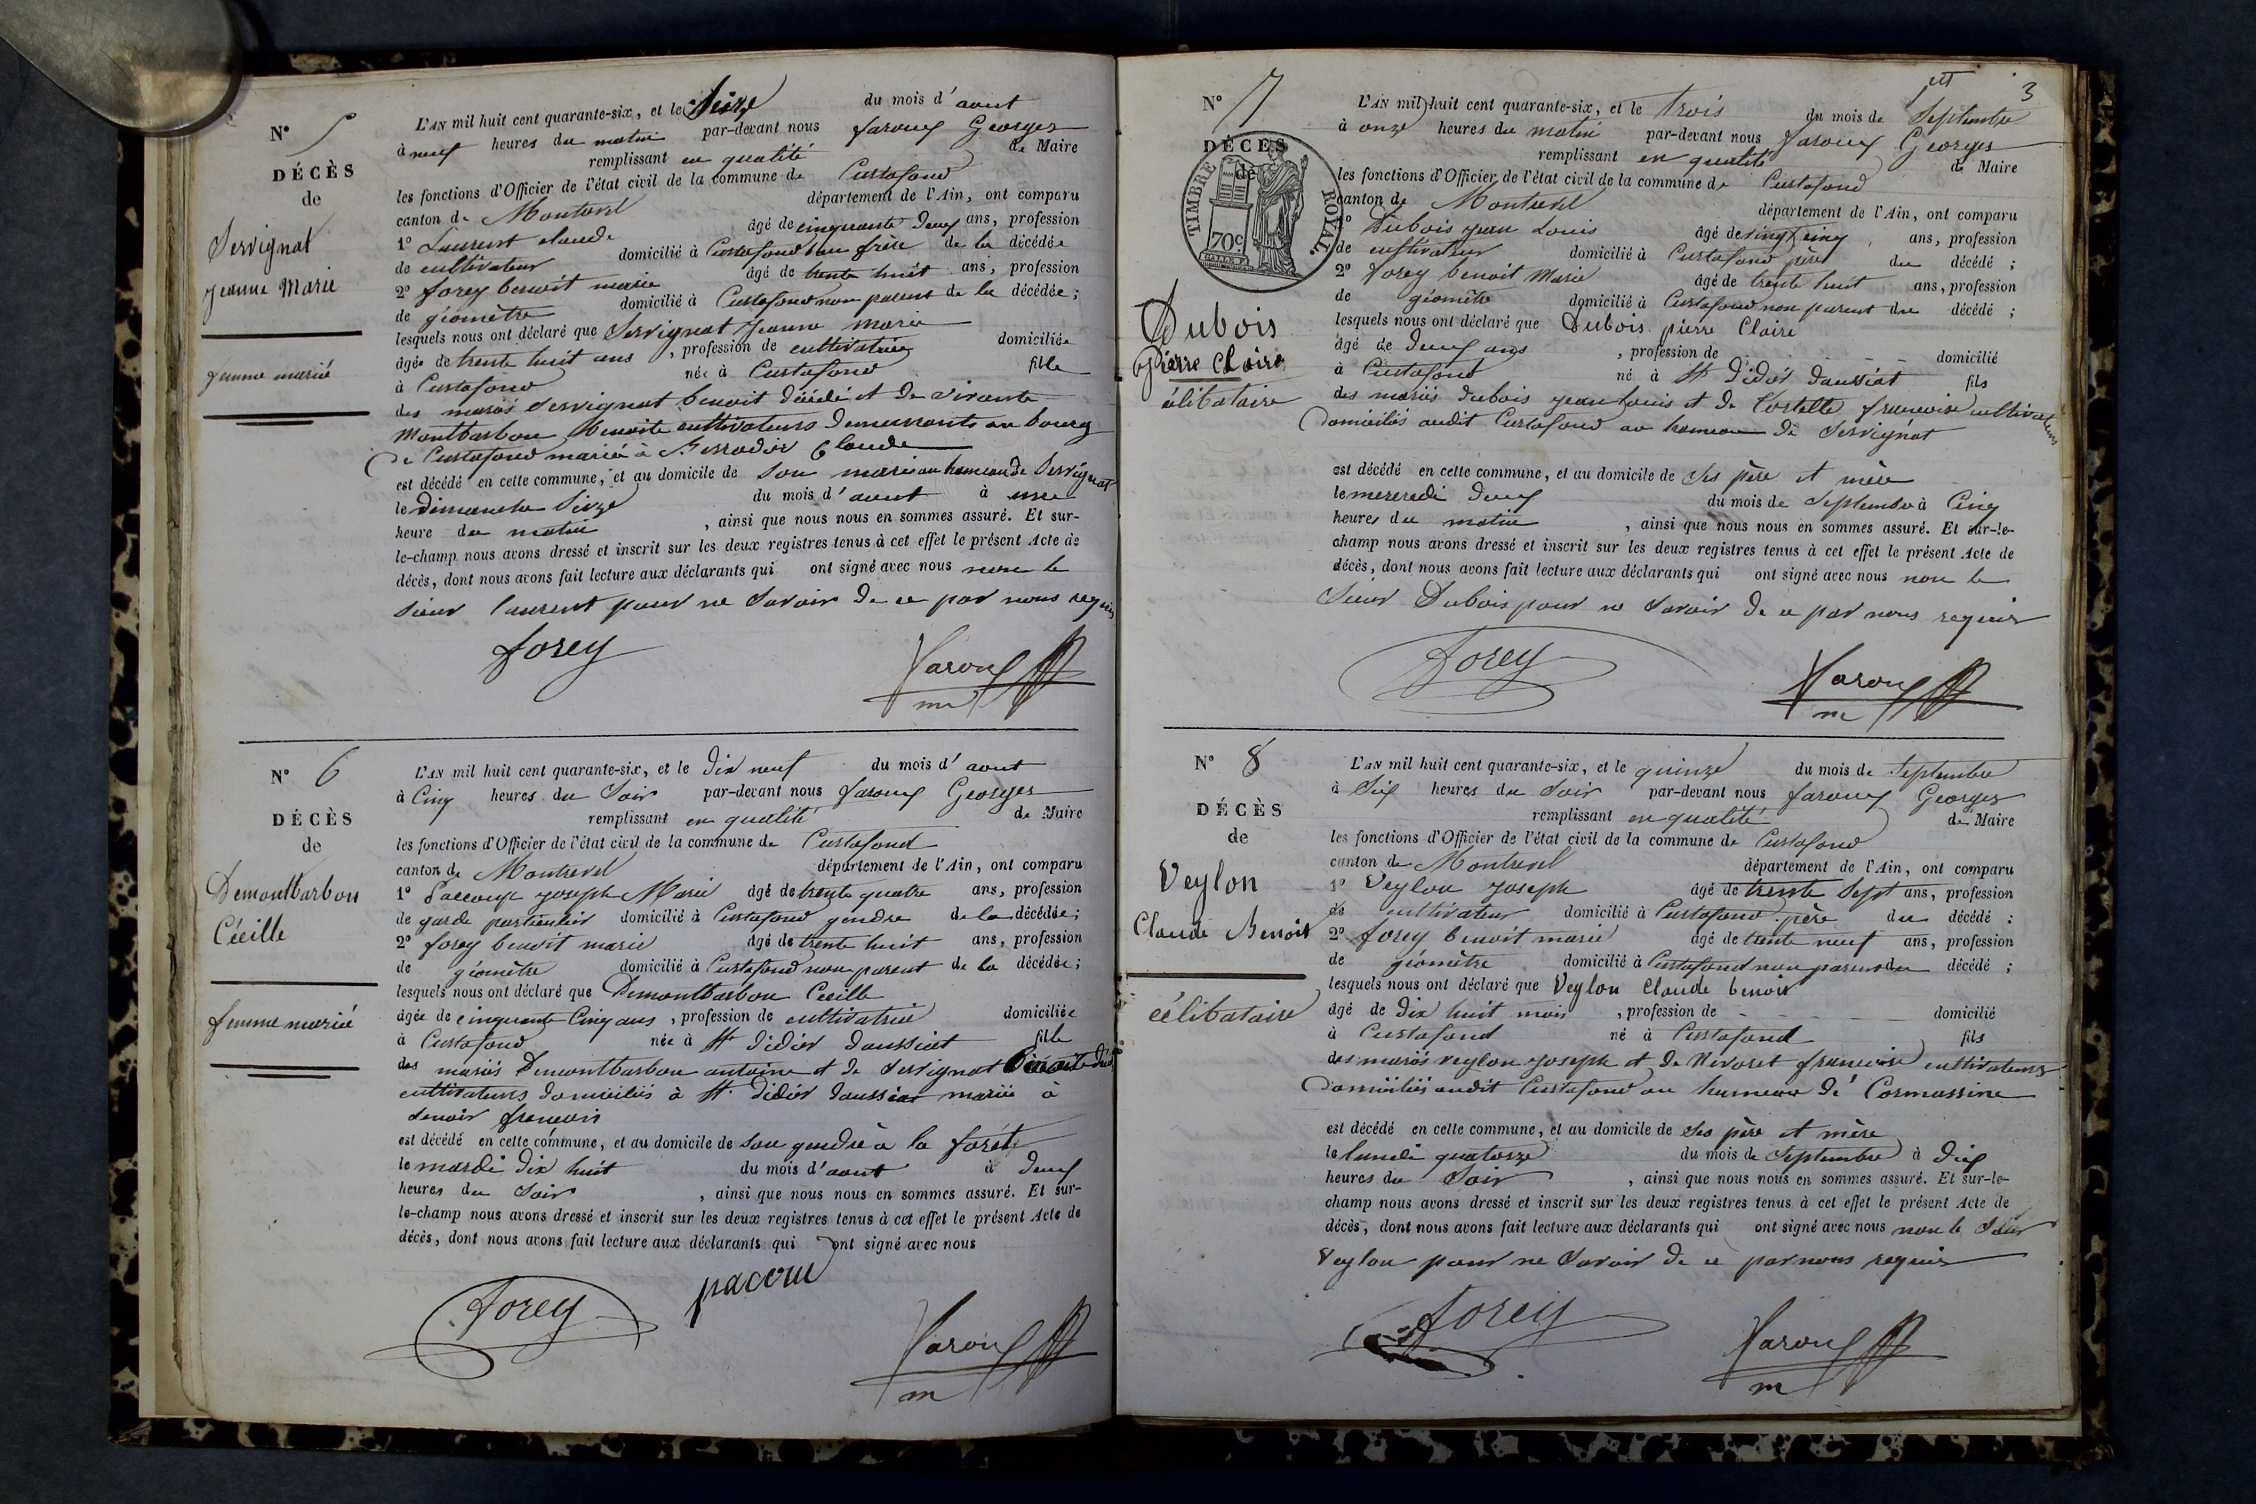 N° 5
DÉCÈS
de
Servignat
Jeanne Marie
femme marié
L'AN mil huit cent quarante-six, et le Seize du mois d'aout
à neuf heures du matin par-devant nous faroux Georges
remplissant en qualité de Maire
les fonctions d'Officier de l'état civil de la commune de Curtafond
canton de Montrevel département de l'Ain, ont comparu
1° Laurent claude âgé de cinquante deux ans, profession
de cultivateur domicilié à Curtafond beau frère de la décédée
2° forey benoit marie âgé de trente huit ans, profession
de géomètre domicilié à Curtafond non parent de la décédée;
lesquels nous ont déclaré que Servignat Jeanne marie
âgée de trente huit ans, profession de cultivatrice domiciliée
à Curtafond née à Curtafond fille
des mariés Servignat benoit décédé et de vivante
Montbarbon benoite cultivateurs demeurants au bourg
de Curtafond mariée à Claude
est décédé en cette commune, et au domicile de son mari au hameau de Servignat
le dimanche Seize du mois d'aout à une
heure du matin, ainsi que nous nous en sommes assuré. Et sur-
le-champ nous avons dressé et inscrit sur les deux registres tenus à cet effet le présent Acte de
décès, dont nous avons fait lecture aux déclarants qui ont signé avec nous non le
sieur laurent pour ne savoir de ce par nous requis
forey faroux
m
N° 6
DÉCÈS
de
Demontbarbon
Cécille
femme marié
L'AN mil huit cent quarante-six, et le dix neuf du mois d'aout
à Cinq heures du Soir par-devant nous faroux Georges
remplissant en qualité de Maire
les fonctions d'Officier de l'état civil de la commune de Curtafond
canton de Montrevel département de l'Ain, ont comparu
1° Paccoux joseph Marie âgé de trente quatre ans, profession
de garde particulier domicilié à Curtafond gendre de la décédée;
2° forey benoit marie âgé de trente huit ans, profession
de géomètre domicilié à Curtafond non parent de la décédée;
lesquels nous ont déclaré que Demontbarbon Cécille
âgée de cinquante Cinq ans, profession de cultivatrice domiciliée
à Curtafond née à St didier daussiat fille
des mariés Demontbarbon antoine et de Servignat
cultivateurs domiciliés à St didier daussiat mariée à
françois
est décédé en cette commune, et au domicile de son gendre à la forêt
le mardi dix huit du mois d'aout à deux
heures du Soir, ainsi que nous nous en sommes assuré. Et sur-
le-champ nous avons dressé et inscrit sur les deux registres tenus à cet effet le présent Acte de
décès, dont nous avons fait lecture aux déclarants qui ont signé avec nous
forey pacou faroux
m
3
N° 7
DÉCÈS
de
TIMBRE ROYAL.
70c.
Dubois
Pierre Claire
célibataire
L'AN mil huit cent quarante-six, et le trois du mois de Septembre
à onze heures du matin par-devant nous faroux Georges
remplissant en qualité de Maire
les fonctions d'Officier de l'état civil de la commune de Curtafond
canton de Montrevel département de l'Ain, ont comparu
1° Dubois jean Louis âgé de vingt cinq ans, profession
de cultivateur domicilié à Curtafond père du décédé;
2° forey benoit Marie âgé de trente huit ans, profession
de géomètre domicilié à Curtafond non parent du décédé;
lesquels nous ont déclaré que Dubois pierre Claire
âgé de deux ans, profession de domicilié
à Curtafond né à St didier daussiat fils
des mariés dubois jean Louis et de françoise cultivateurs
domiciliés audit Curtafond au hameau de Servignat
est décédé en cette commune, et au domicile de ses père et mère
le mercredi deux du mois de Septembre à Cinq
heures du matin, ainsi que nous nous en sommes assuré. Et sur-le-
champ nous avons dressé et inscrit sur les deux registres tenus à cet effet le présent Acte de
décès, dont nous avons fait lecture aux déclarants qui ont signé avec nous non le
Sieur Dubois pour ne Savoir de ce par nous requis
forey faroux
m
N° 8
DÉCÈS
de
Veylon
Claude Benoit
célibataire
L'AN mil huit cent quarante-six, et le quinze du mois de Septembre
à Six heures du Soir par-devant nous faroux Georges
remplissant en qualité de Maire
les fonctions d'Officier de l'état civil de la commune de Curtafond
canton de Montrevel département de l'Ain, ont comparu
1° Veylon joseph âgé de trente Sept ans, profession
de cultivateur domicilié à Curtafond père du décédé;
2° forey benoit marie âgé de trente neuf ans, profession
de géomètre domicilié à Curtafond non parent du décédé;
lesquels nous ont déclaré que Veylon Claude benoit
âgé de dix huit mois, profession de domicilié
à Curtafond né à Curtafond fils
des mariés veylon joseph et de Nivoret françoise cultivateurs
domiciliés audit Curtafond au hameau de Cormassine
est décédé en cette commune, et au domicile de ses père et mère
le lundi quatorze du mois de Septembre à dix
heures du Soir, ainsi que nous nous en sommes assuré. Et sur-le-
champ nous avons dressé et inscrit sur les deux registres tenus à cet effet le présent Acte de
décès, dont nous avons fait lecture aux déclarants qui ont signé avec nous non le Sieur
Veylon pour ne Savoir de ce par nous requis
forey faroux
m